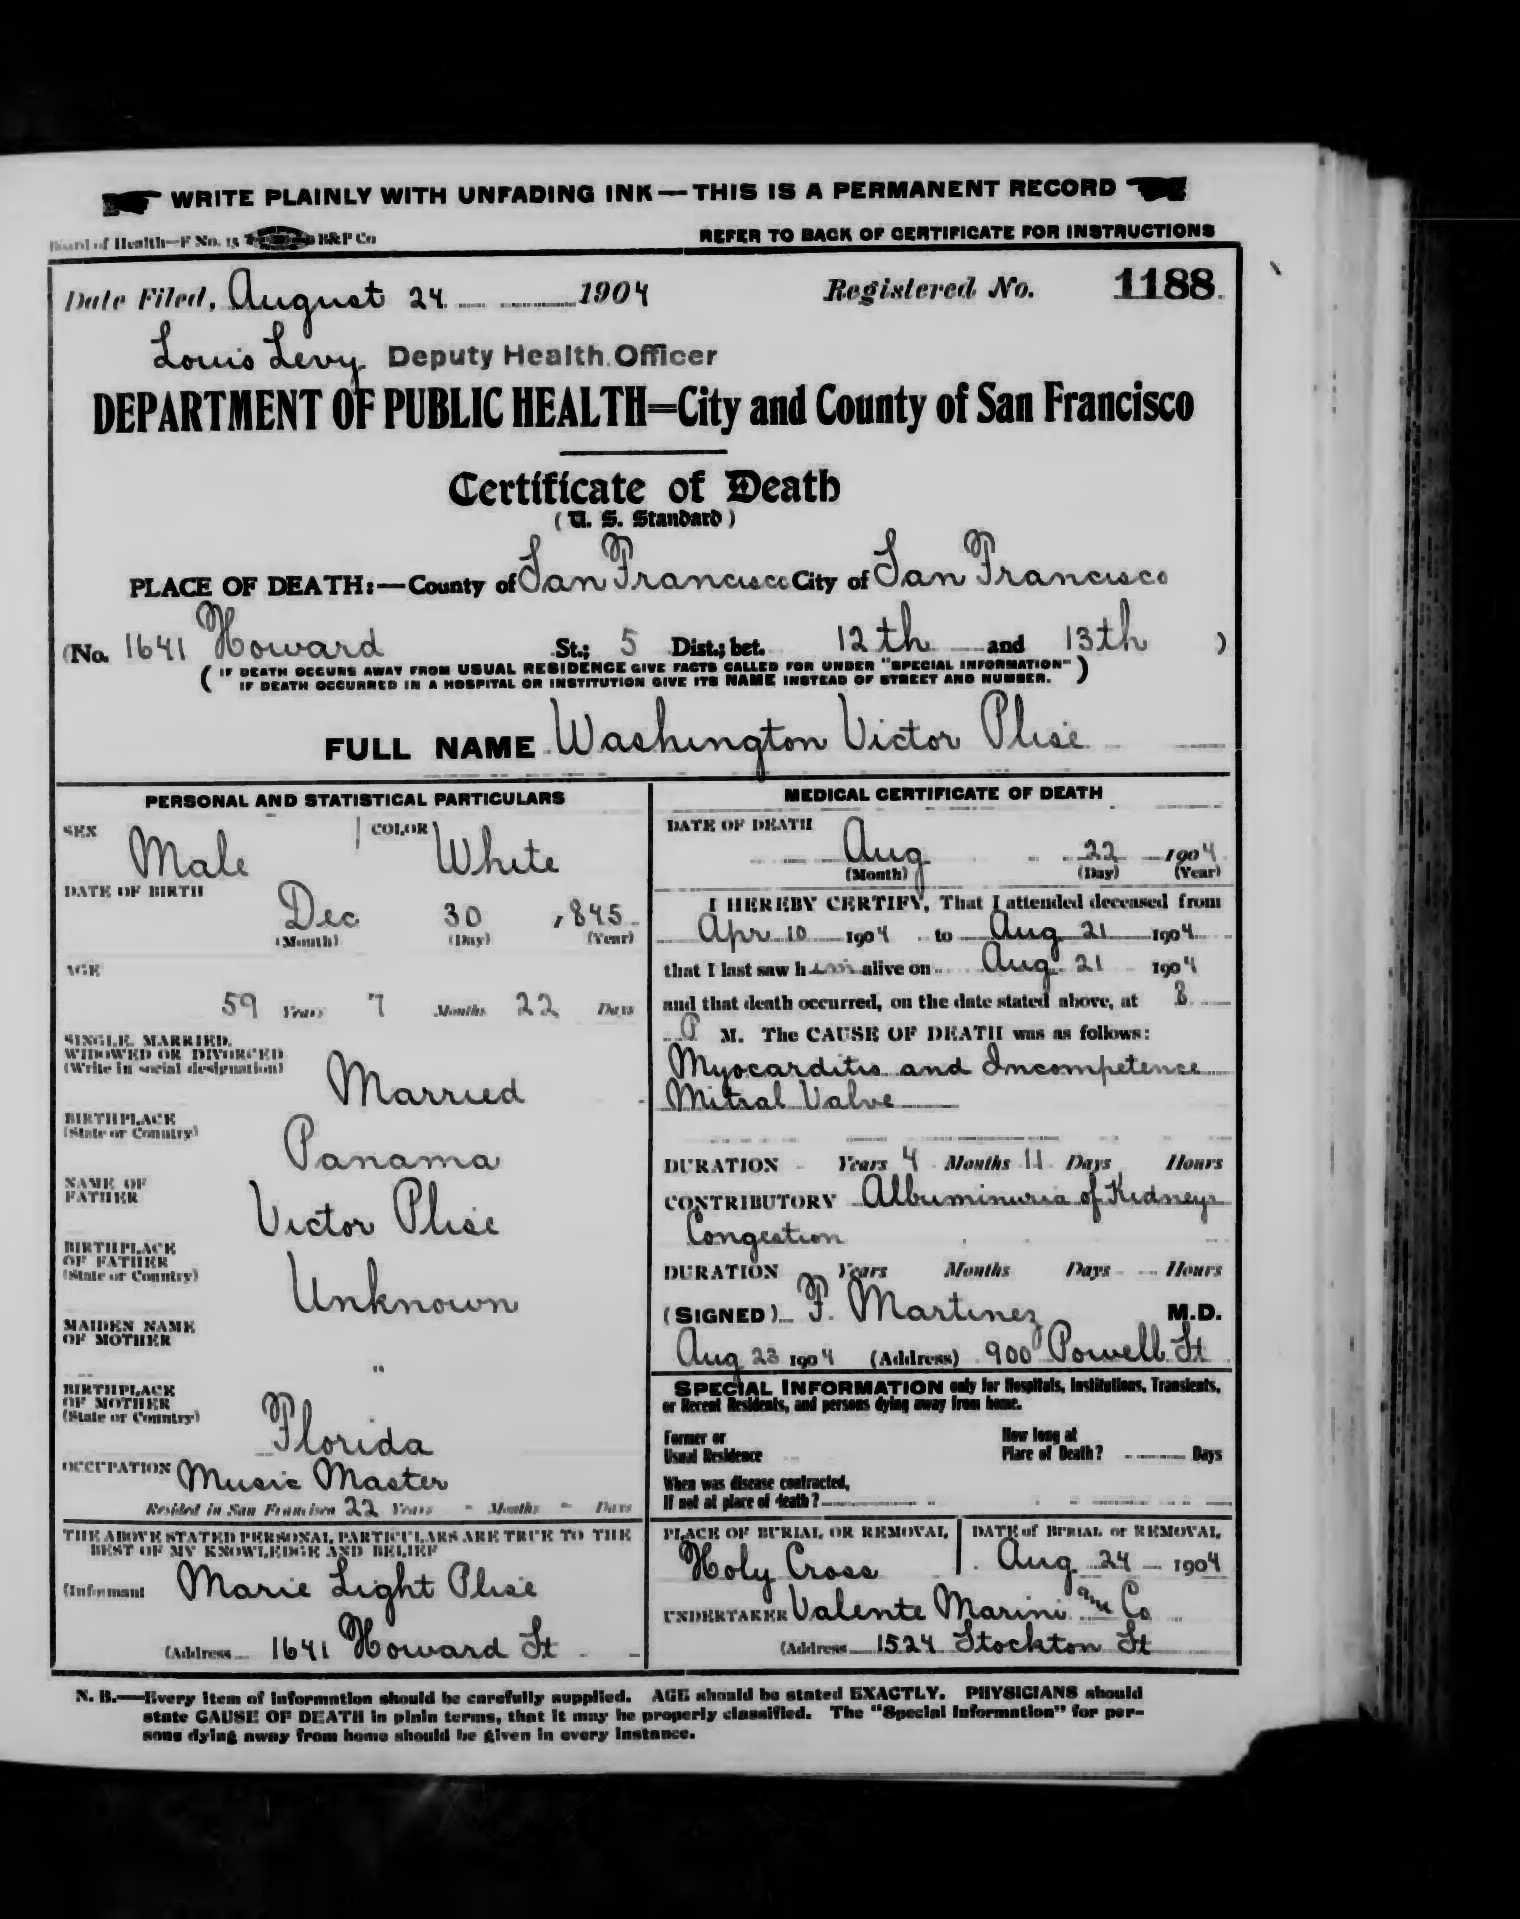 WRITE PLAINLY WITH UNFADING INK—THIS IS A PERMANENT RECORD
Board of Health—F No. 15 B&P Co
REFER TO BACK OF CERTIFICATE FOR INSTRUCTIONS
Date Filed, August 24 1904 Registered No. 1188
Louis Levy Deputy Health Officer
DEPARTMENT OF PUBLIC HEALTH=City and County of San Francisco
Certificate of Death
(U. S. Standard)
PLACE OF DEATH:—County of San Francisco City of San Francisco
(No. 1641 Howard St.; 5 Dist.; bet. 12th and 13th )
( IF DEATH OCCURS AWAY FROM USUAL RESIDENCE GIVE FACTS CALLED FOR UNDER "SPECIAL INFORMATION" )
IF DEATH OCCURRED IN A HOSPITAL OR INSTITUTION GIVE ITS NAME INSTEAD OF STREET AND NUMBER.
FULL NAME Washington Victor Plisé
PERSONAL AND STATISTICAL PARTICULARS
SEX Male COLOR White
DATE OF BIRTH Dec 30 1845
(Month) (Day) (Year)
AGE
59 Years 7 Months 22 Days
SINGLE, MARRIED,
WIDOWED OR DIVORCED
(Write in social designation) Married
BIRTHPLACE
(State or Country) Panama
NAME OF
FATHER Victor Plisé
BIRTHPLACE
OF FATHER
(State or Country) Unknown
MAIDEN NAME
OF MOTHER "
BIRTHPLACE
OF MOTHER
(State or Country) Florida
OCCUPATION Music Master
Resided in San Francisco 22 Years - Months - Days
THE ABOVE STATED PERSONAL PARTICULARS ARE TRUE TO THE
BEST OF MY KNOWLEDGE AND BELIEF
(Informant Marie Light Plisé
(Address 1641 Howard St
MEDICAL CERTIFICATE OF DEATH
DATE OF DEATH
Aug 22 1904
(Month) (Day) (Year)
I HEREBY CERTIFY, That I attended deceased from
Apr 10 1904 to Aug 21 1904
that I last saw him alive on Aug 21 1904
and that death occurred, on the date stated above, at 8
P M. The CAUSE OF DEATH was as follows:
Myocarditis and Incompetence
Mitral Valve
DURATION Years 4 Months 11 Days Hours
CONTRIBUTORY Albuminuria of Kidneys
Congestion
DURATION Years Months Days Hours
(SIGNED) F. Martinez M.D.
Aug 23 1904 (Address) 900 Powell St
SPECIAL INFORMATION only for Hospitals, Institutions, Transients,
or Recent Residents, and persons dying away from home.
Former or
Usual Residence
How long at
Place of Death? Days
When was disease contracted,
If not at place of death?
PLACE OF BURIAL OR REMOVAL Holy Cross
DATE of BURIAL or REMOVAL Aug 24 1904
UNDERTAKER Valente Marini and Co
(Address 1524 Stockton St
N. B.—Every item of information should be carefully supplied. AGE should be stated EXACTLY. PHYSICIANS should
state CAUSE OF DEATH in plain terms, that it may be properly classified. The "Special Information" for per-
sons dying away from home should be given in every instance.